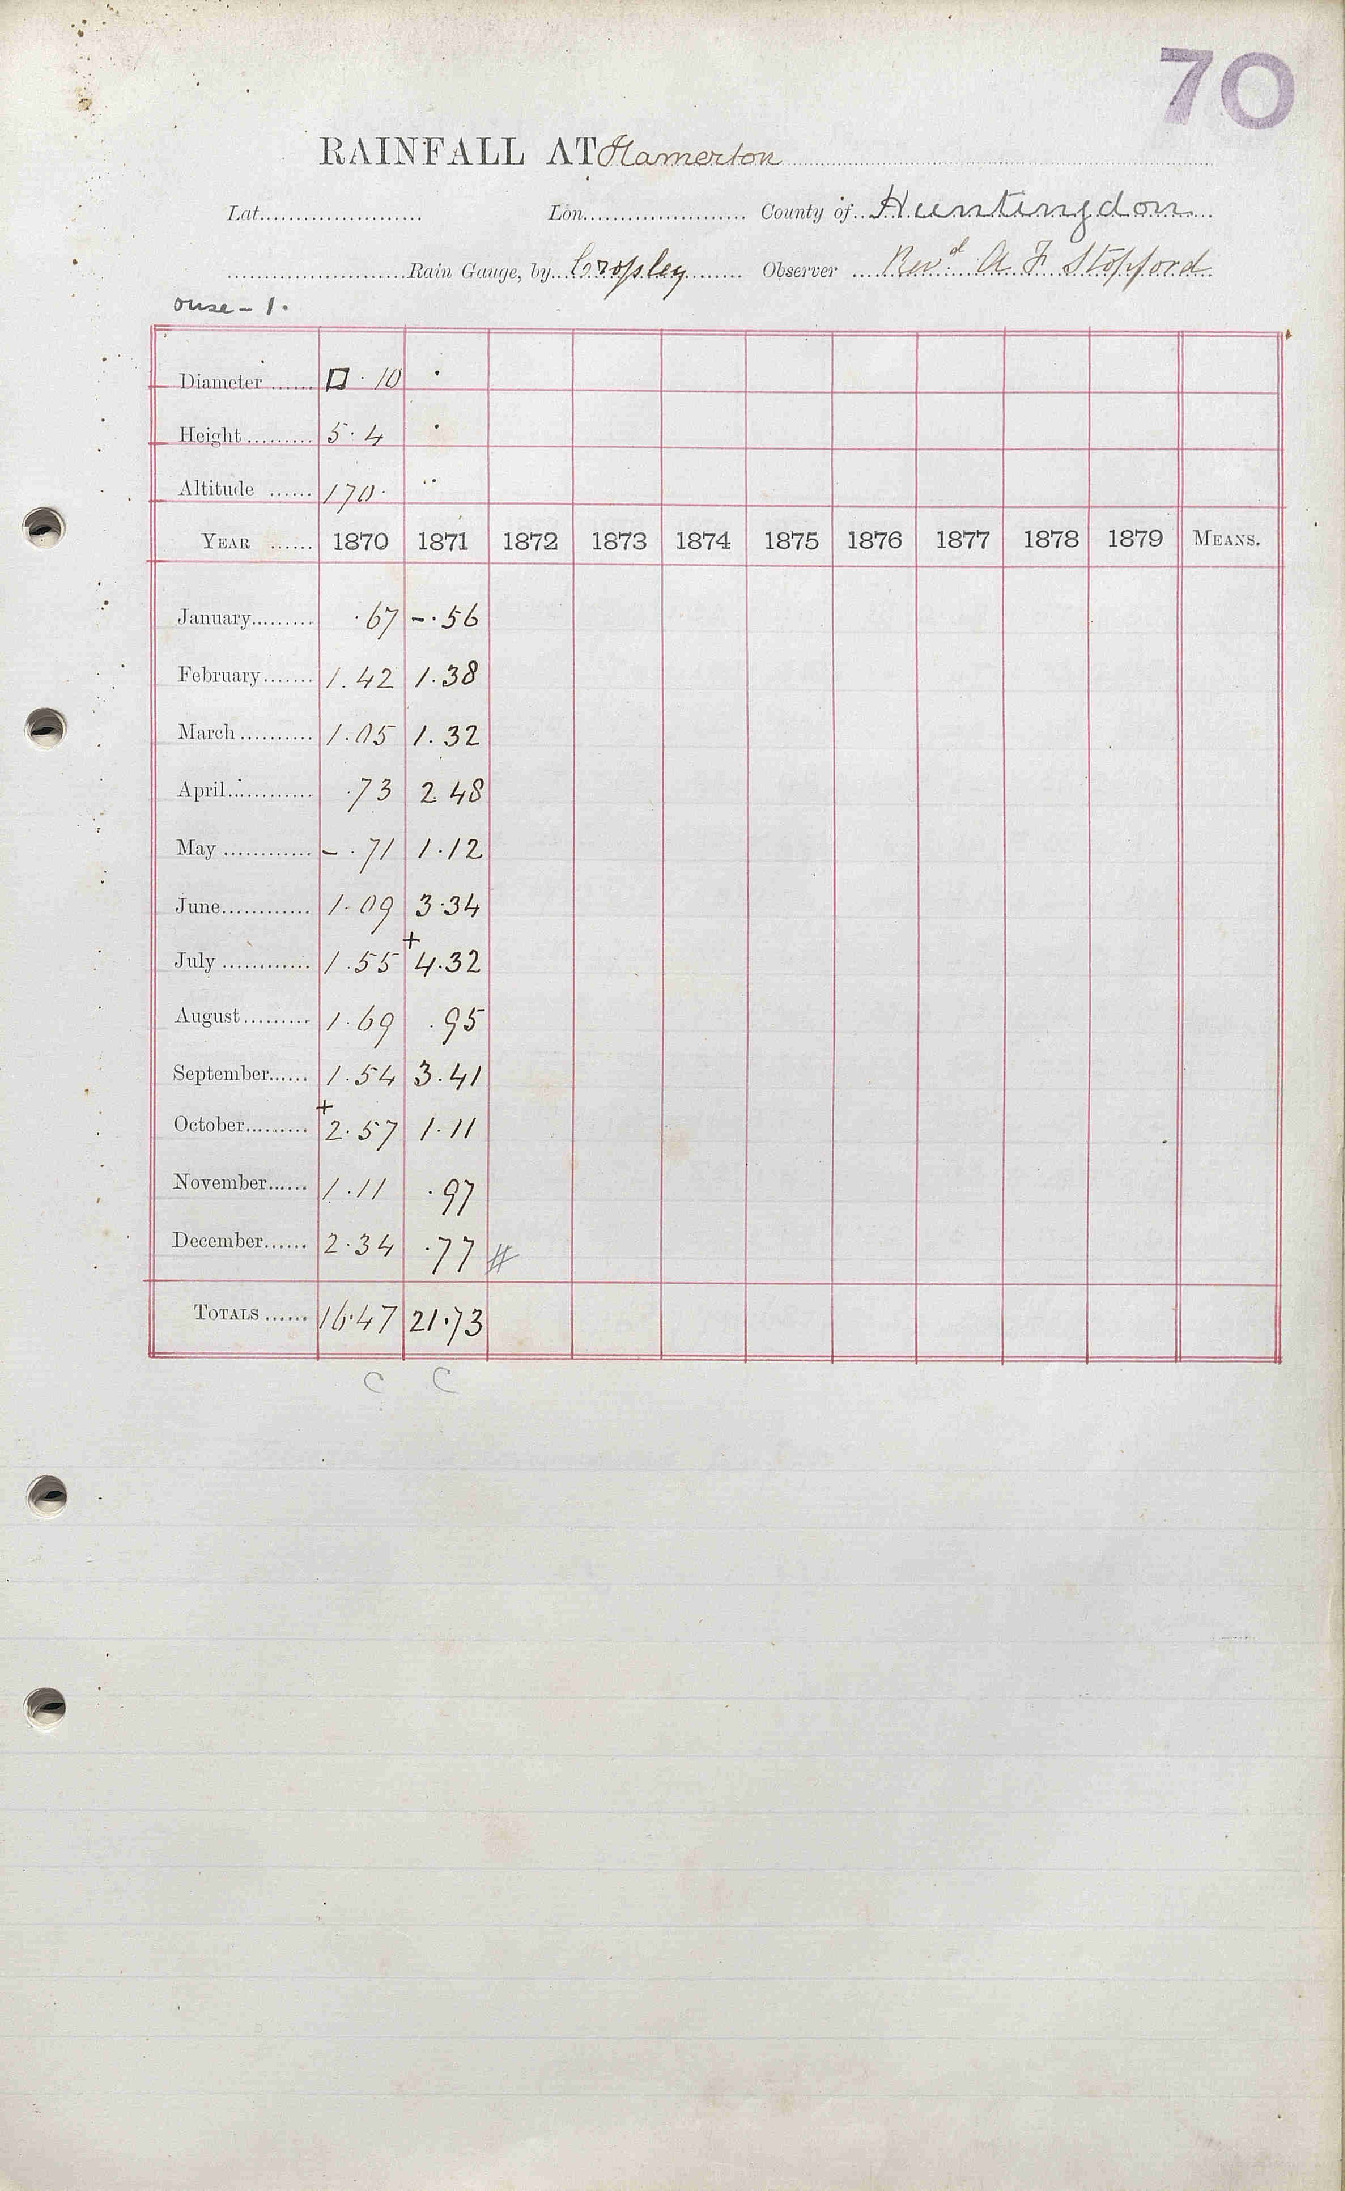 70
RAINFALL AT Hamerton
Lat. Lon. County of Huntingdon
Rain Gauge, by Cropley Observer Revd. A F Stopford
Ouse - 1.
Diameter □ . 10 .
Height 5.4 .
Altitude 170. ..
YEAR 1870 1871 1872 1873 1874 1875 1876 1877 1878 1879 MEANS.
January .67 - .56
February 1.42 1.38
March 1.05 1.32
April .73 2 48
May - .71 1.12
June 1.09 3.34
July 1.55 + 4.32
August 1.69 .95
September 1.54 3.41
October + 2.57 1.11
November 1.11 .97
December 2.34 .77 #
TOTALS 16.47 21.73
C C